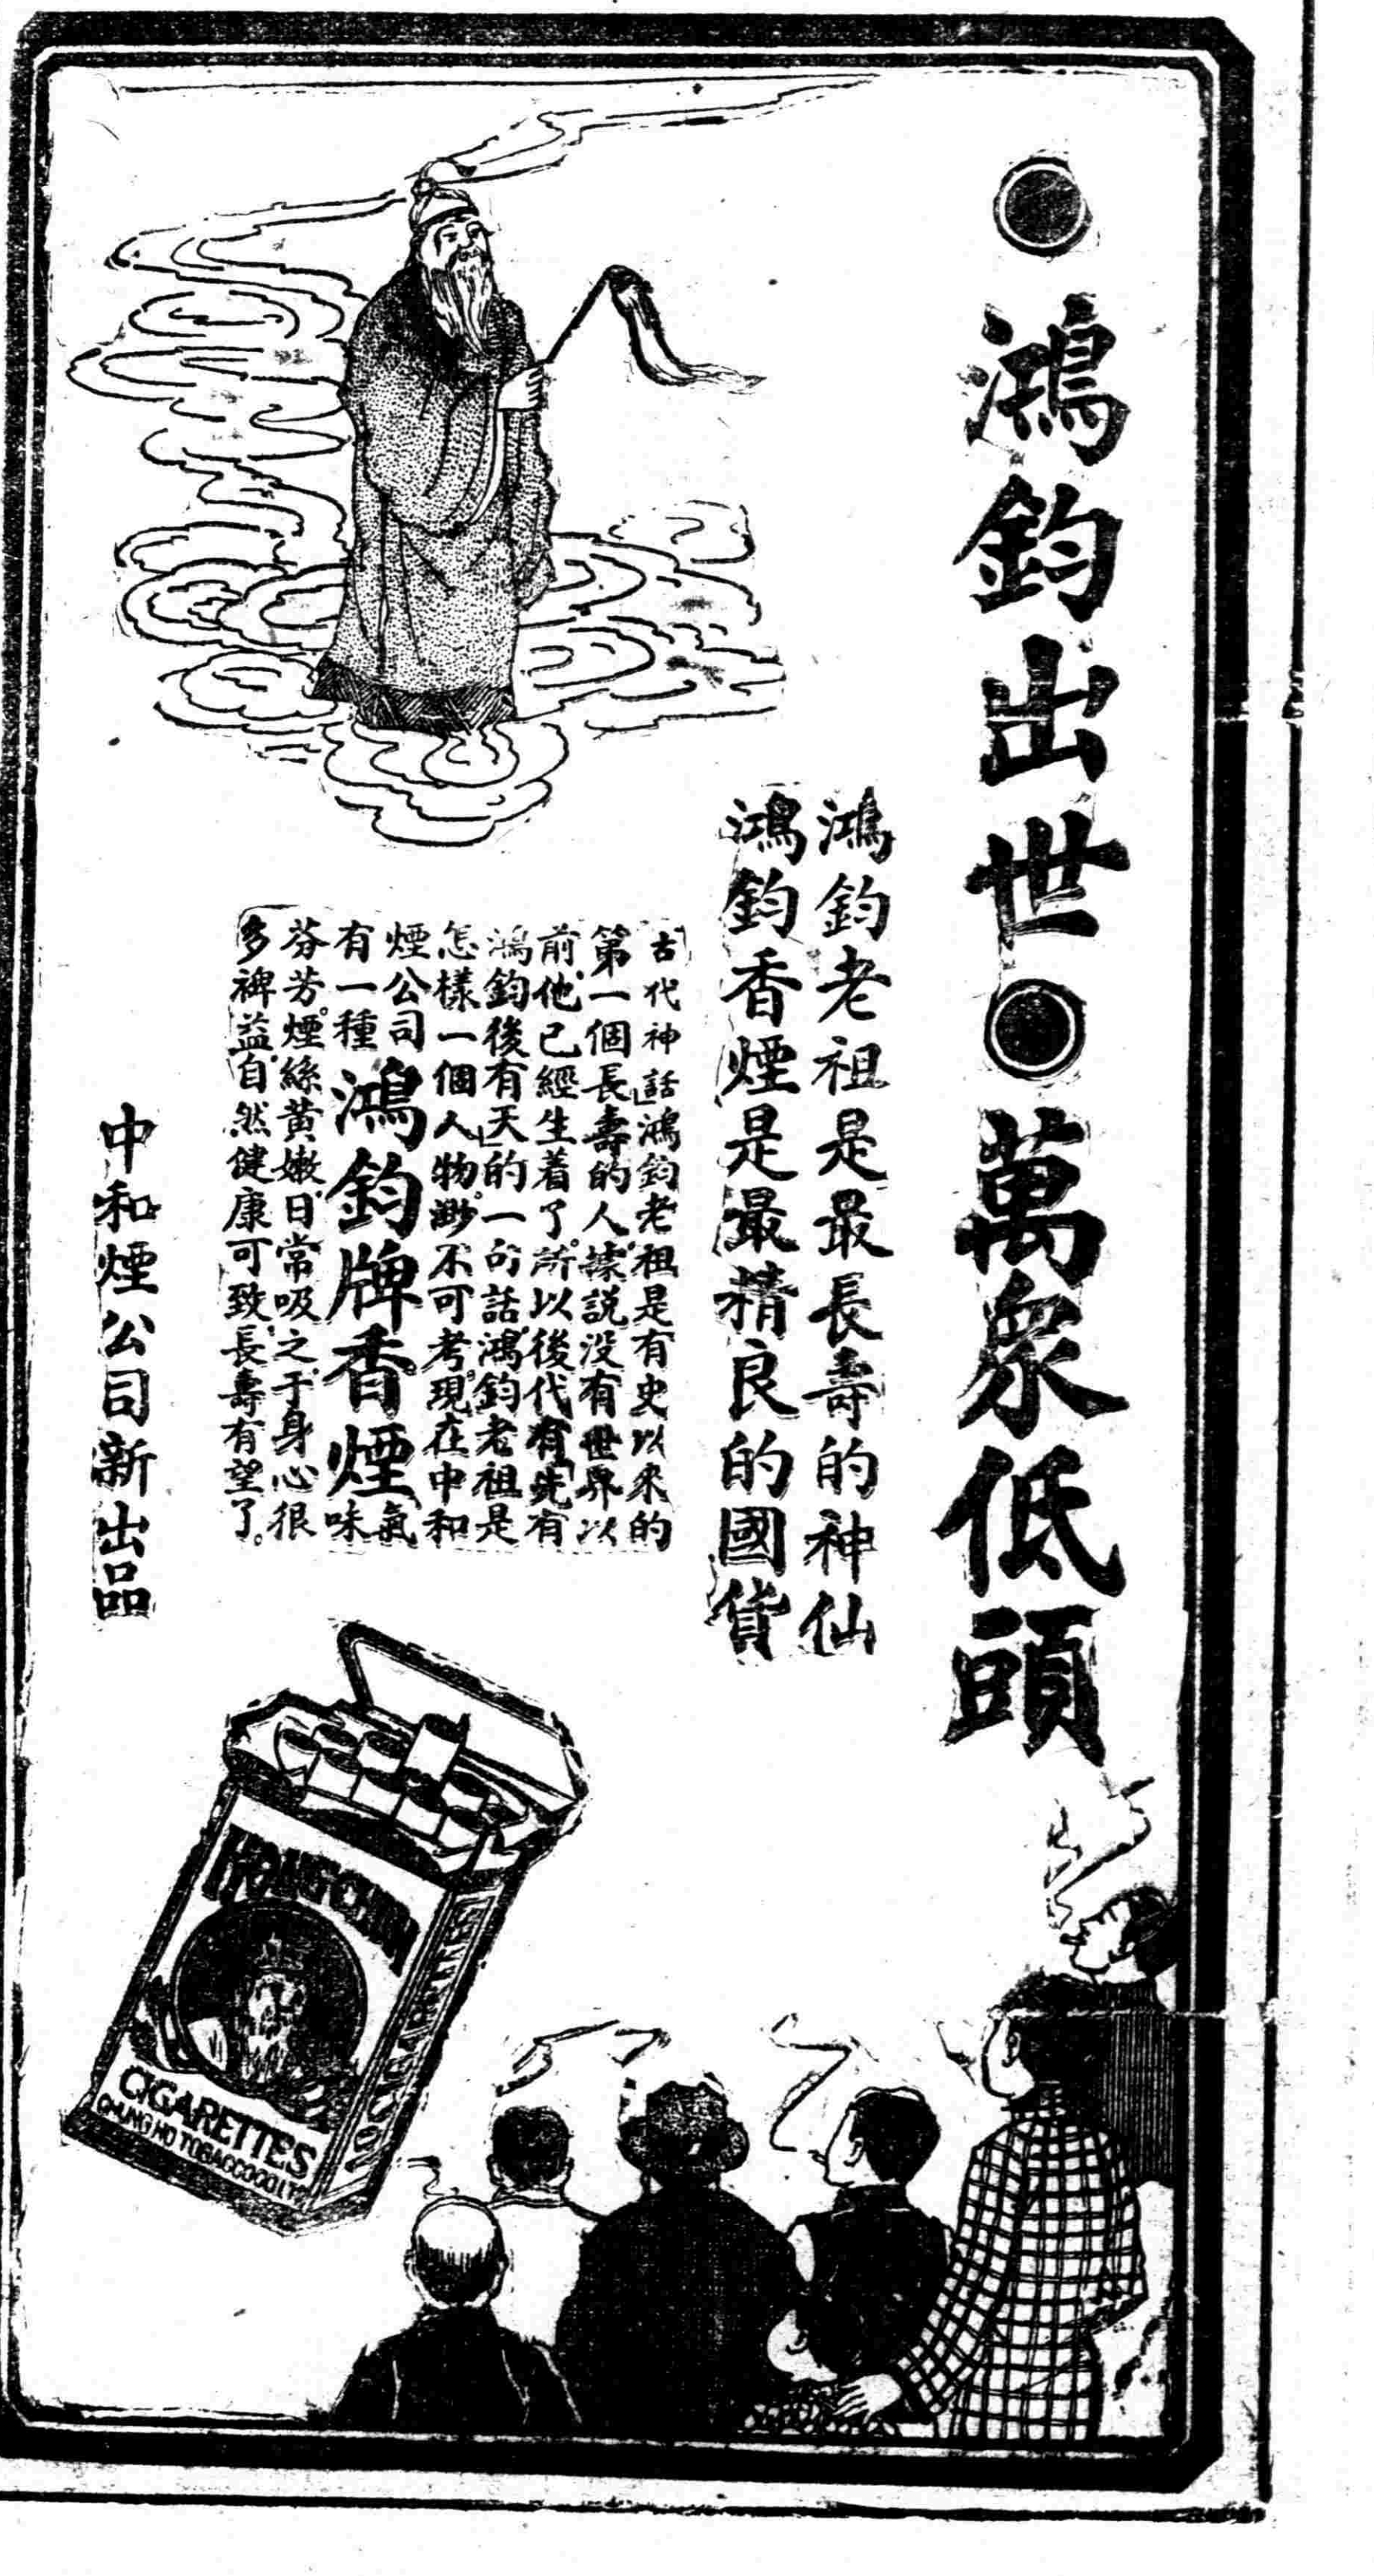 ●鴻鈞出世●萬衆低頭
鴻鈞老祖是最長壽的神仙
鴻鈞香煙是最精良的國貨
古代神話鴻鈞老祖是有史以來的
第一個長壽的人。據説没有世界以
前、他已經生着了。所以後代有「先有
鴻鈞後有天」的一句話。鴻鈞老祖是
怎樣一個人物。渺不可考。現在中和
煙公司
有一種鴻鈞牌香煙氣味
芬芳。煙絲黄嫩、日常吸之、于身心很
多裨益、自然健康可致、長壽有望了。
中和煙公司新出品
HOUNG CHUN
CIGARETTES
CHUNG HO TOBACCO CO LTD